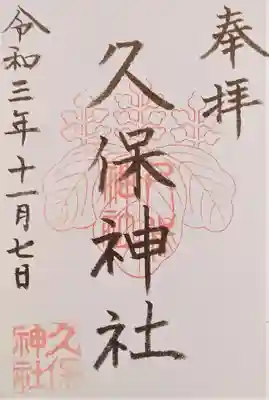 奉拝
久保神社
令和三年十一月七日
久保
神社